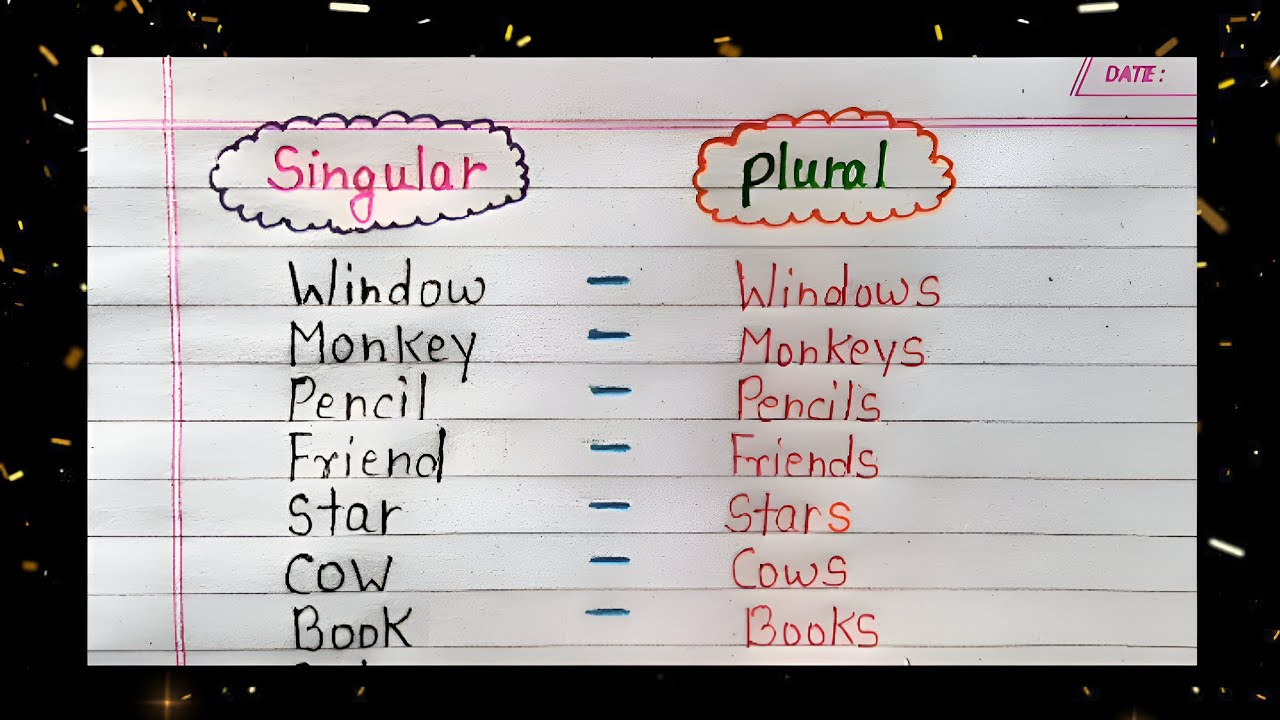 DATE:
Singular plural
Window - Windows
Monkey - Monkeys
Pencil - Pencils
Friend - Friends
Star - Stars
Cow - Cows
Book - Books